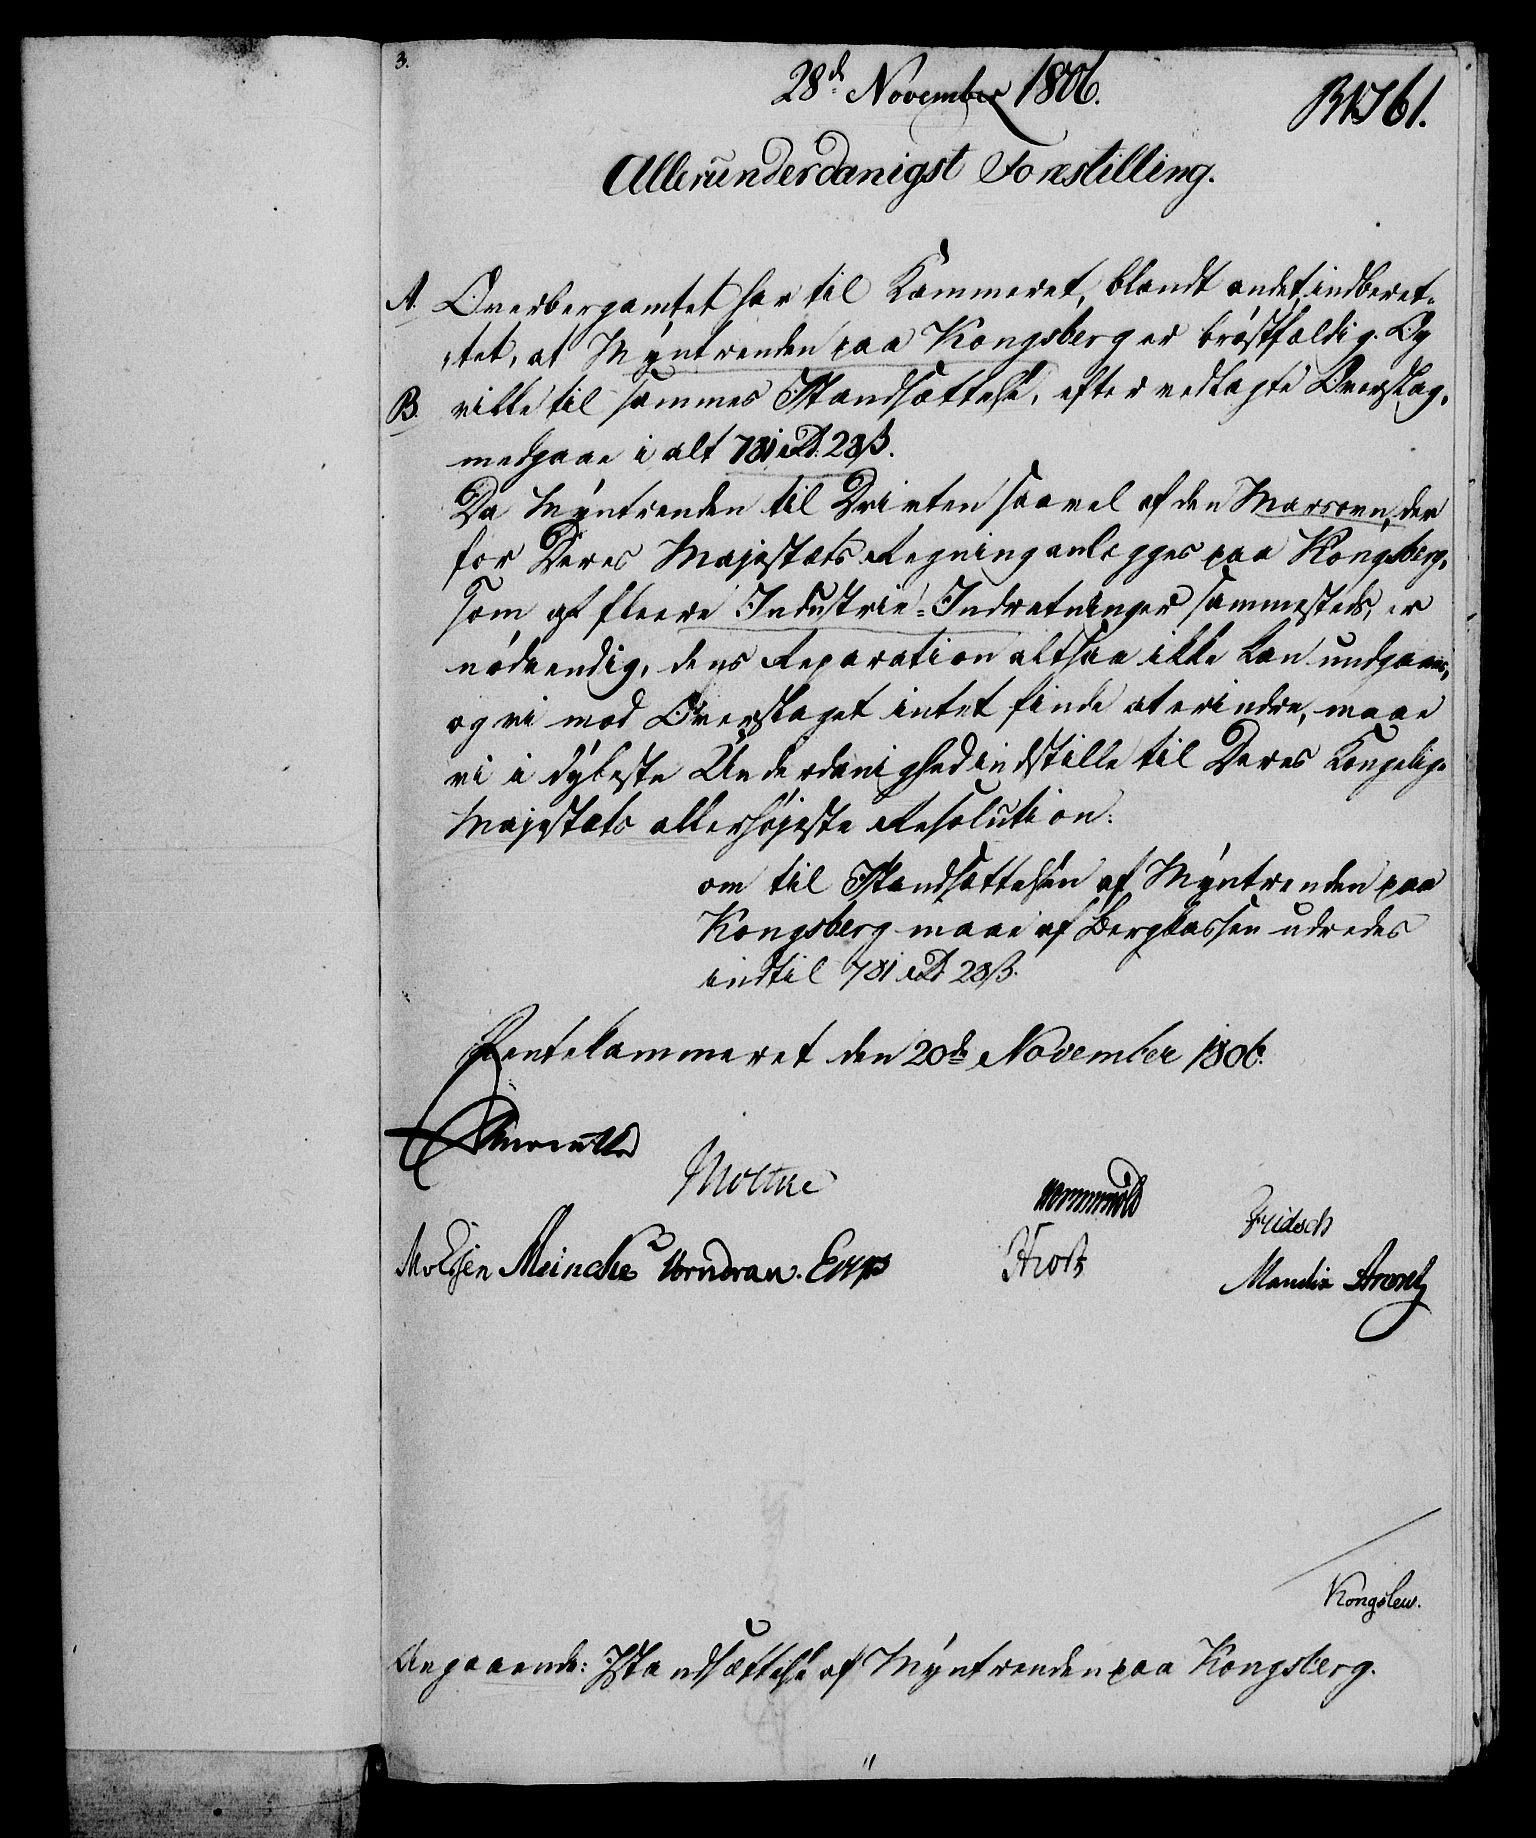 3.
28de November 1806.
No 61.
Allerunderdanigst Forestilling.
A. Overbergamtet har til Kammeret, blandt andet, indberet-
tet, at Myntrenden paa Kongsberg er brøstfældig. Og
B. ville til sammes Istandsættelse, efter vedlagte Overslag,
medgaae i alt 781 rd. 28 ß.
Da Myntrenden til Driften saavel af den Marsovn, der
for Deres Majestæts Regning anlægges paa Kongsberg,
som af fleere Industrie-Indretninger sammesteds, er
nødvendig, dens Reparation altsaa ikke kan undgaaes,
og vi mod Overslaget intet finde at erindre, maae
vi i dybeste Underdanighed indstille til Deres Kongelige
Majestæts allerhøjeste Resolution:
om til Istandsættelsen af Myntrenden paa
Kongsberg maae af Bergkassen udredes
indtil 781 rd 28 ß.
Rentekammeret den 20de November 1806.
Reventlow
Moltke
Wormskiold
Fridsch
Meincke Vorndran.
Hrost
Mandix Arentz
Kongslew.
Angaaende: Istandsættelse af Myntrenden paa Kongsberg.